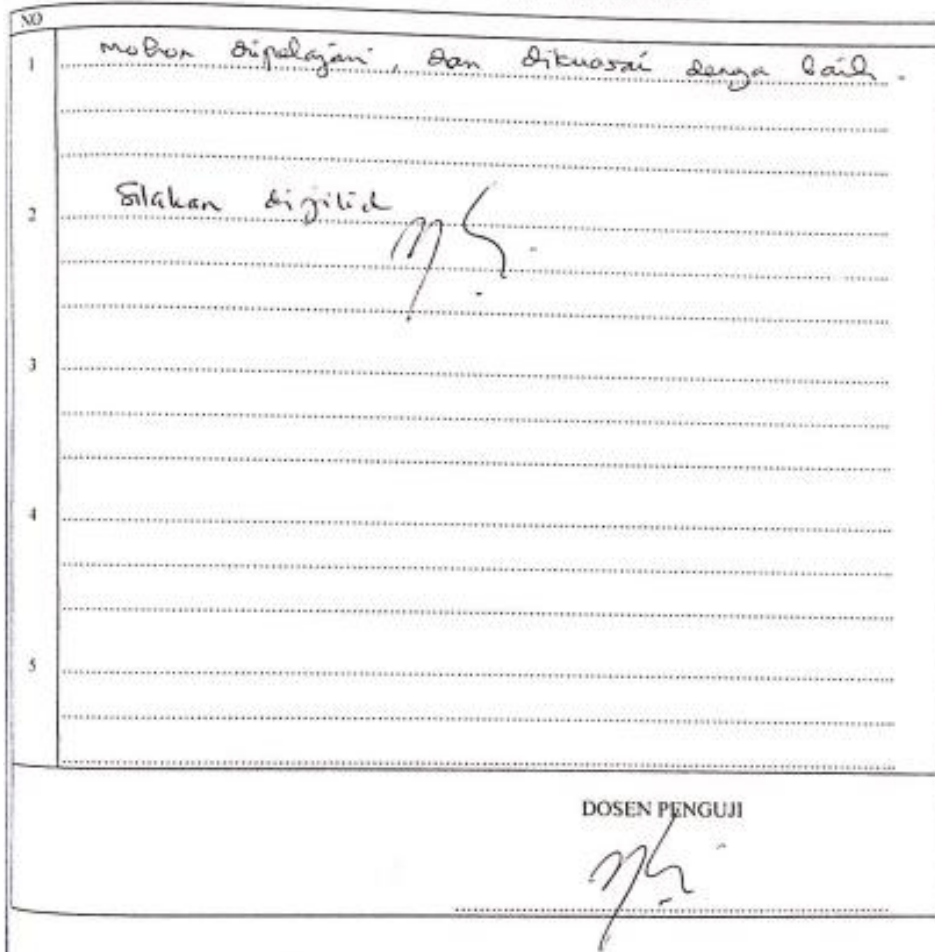 NO
1 mohon dipelajari, dan dikuasai denga baik.
2 Silakan dijilid
3
4
5
DOSEN PENGUJI